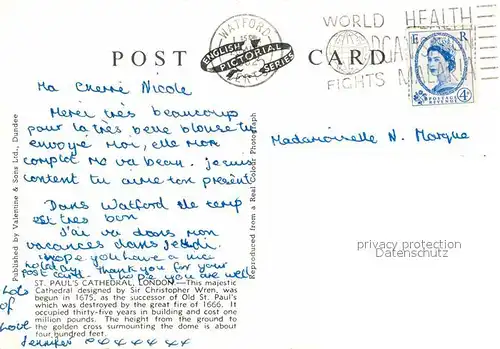 WORLD HEALTH
FIGHTS
WATFORD
ENGLISH
PICTORIAL
SERIES
POST CARD
E R
POSTAGE
REVENUE
4D
Ma Cherrè Nicole
Merci très beaucoup
pour la très belle blouse tu
envoyé moi, elle mon
complet
va beau. je suis
content tu aime ton présent
Dans Watford le temp
est très bon
J'ai va dans mon
vacances dans Jeudi.
I hope you have a nice
holiday. Thank you for your
post card. I hope you are well
Lots
of
Love
Jennifer xxxxxxx
Madamoiselle N. Marque
Published by Valentine & Sons Ltd., Dundee
Reproduced from a Real Colour Photograph
privacy protection
Datenschutz
ST. PAUL'S CATHEDRAL, LONDON.—This majestic
Cathedral designed by Sir Christopher Wren, was
begun in 1675, as the successor of Old St. Paul's
which was destroyed by the great fire of 1666. It
occupied thirty-five years in building and cost one
million pounds. The height from the ground to
the golden cross surmounting the dome is about
four hundred feet.